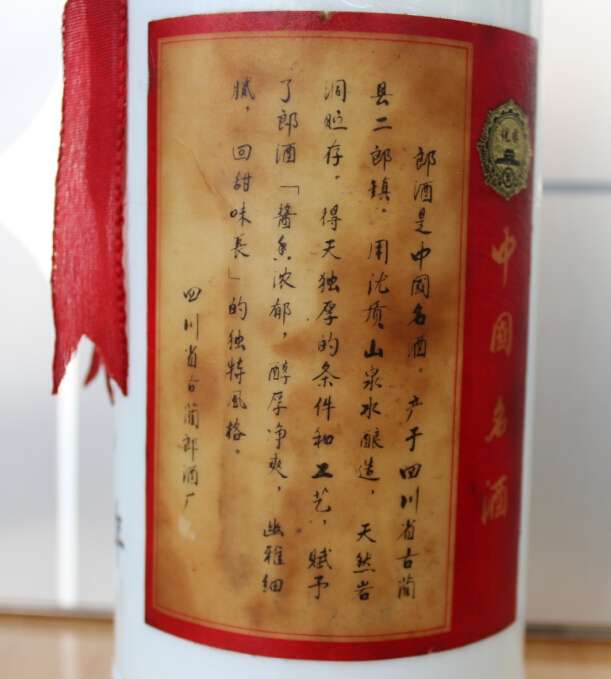 中國名酒
郎酒是中國名酒。产于四川省古蔺
县二郎镇。用优质山泉水酿造，天然岩
洞贮存。得天独厚的条件和工艺，赋予
了郎酒「醬香浓郁，醇厚净爽，幽雅细
腻，回甜味長」的独特風格。
四川省古蔺郎酒厂